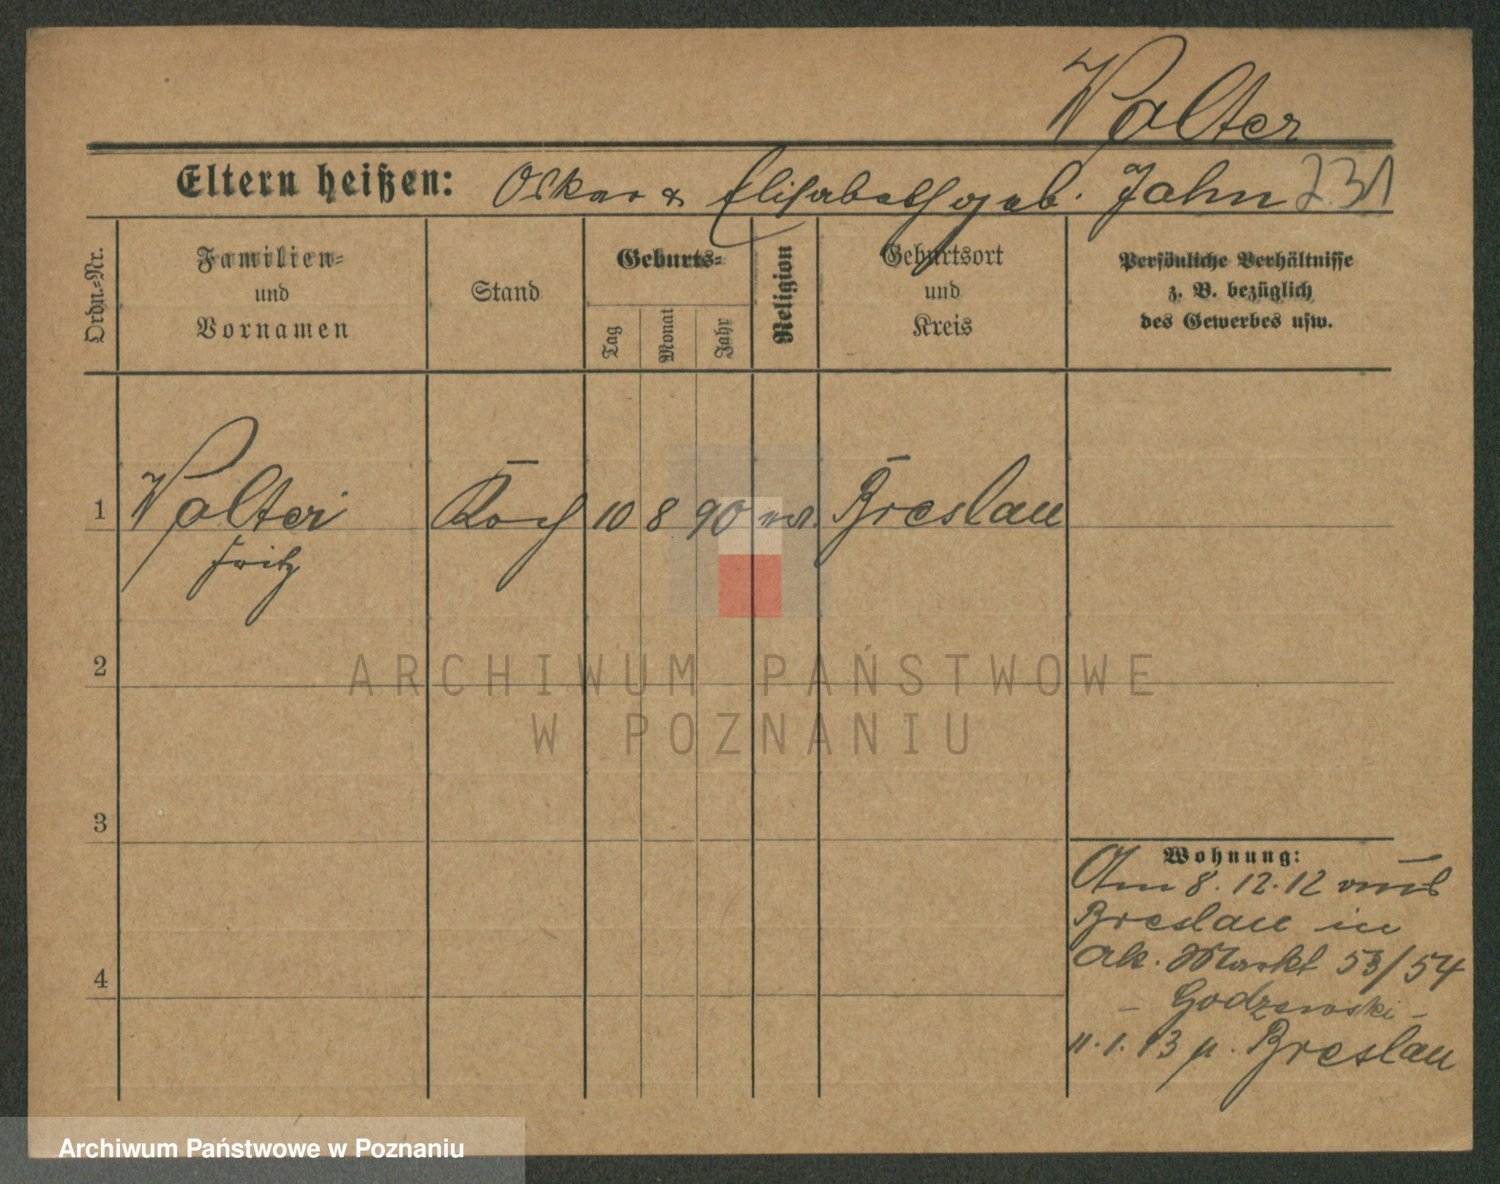 Walter
Eltern heißen: Oskar & Elisabeth geb. Jahn 231
Ordn.-Nr.
Familien-
und
Vornamen
Stand
Geburts-
Tag
Monat
Jahr
Religion
Geburtsort
und
Kreis
Persönliche Verhältnisse
z. B. bezüglich
des Gewerbes usw.
1 Walter Koch 10 8 90 Breslau
Fritz
2
3
4
Wohnung:
Am 8. 12. 12 aus
Breslau in
alt. Markt 53/54
- Godzewski -
11. 1. 13 n. Breslau
ARCHIWUM PAŃSTWOWE
W POZNANIU
Archiwum Państwowe w Poznaniu